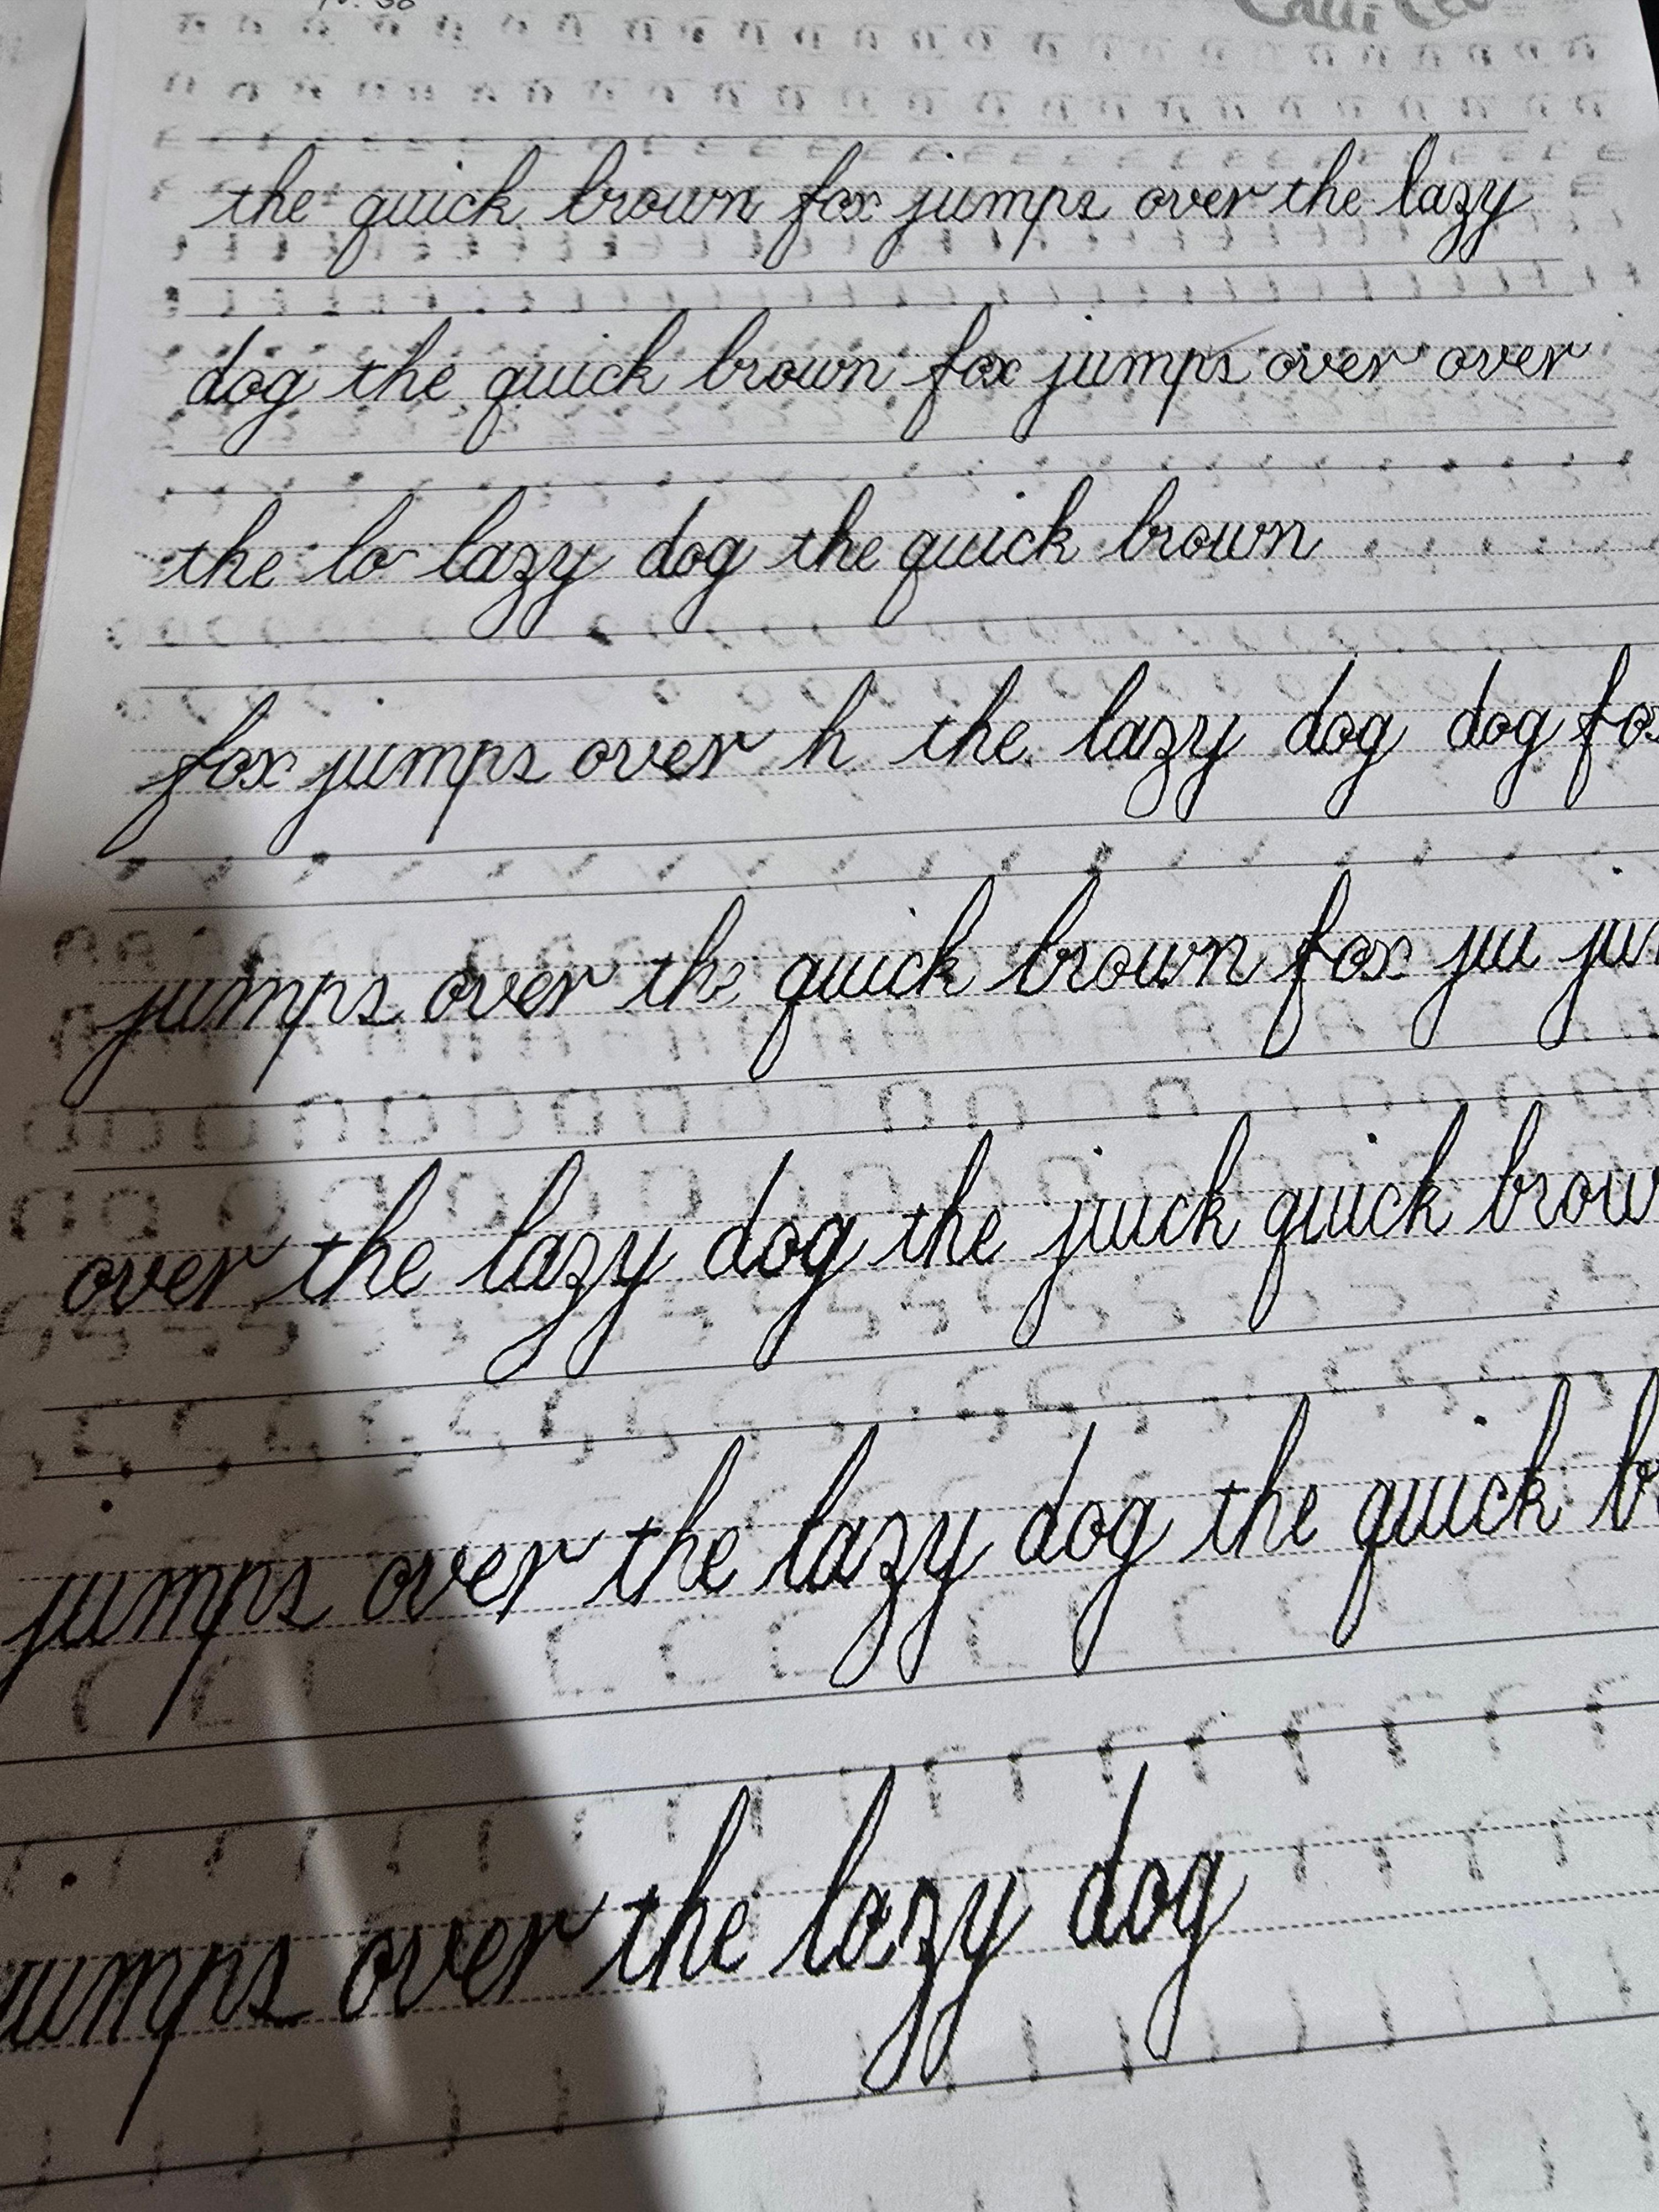 the quick brown fox jumps over the lazy
dog the quick brown fox jumps over over
the lo lazy dog the quick brown
fox jumps over h the lazy dog dog fox
jumps over the quick brown fox ju jum
over the lazy dog the juick quick brow
jumps over the lazy dog the quick b
umps over the lazy dog